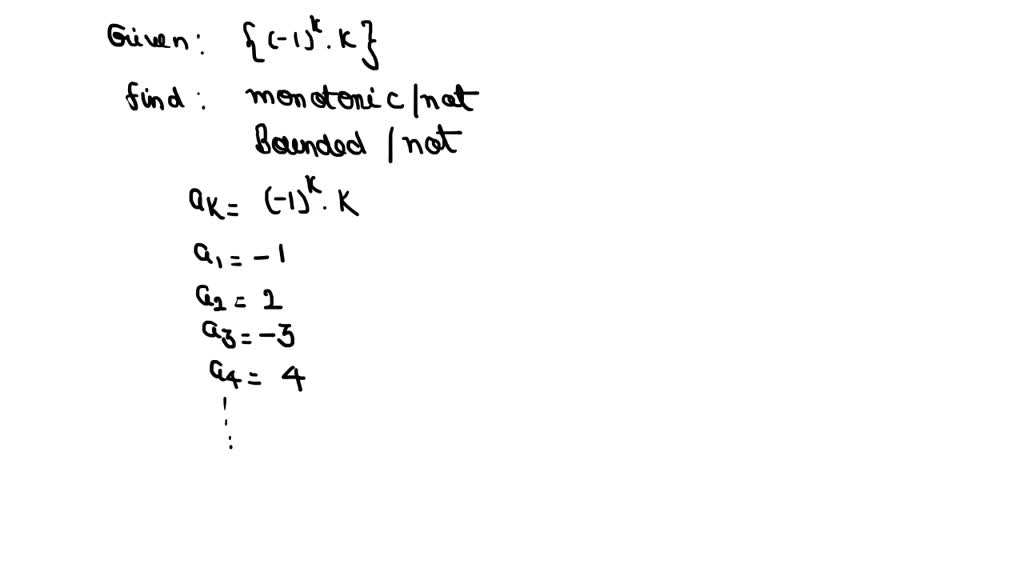 Given: {(-1)^k . K}
find: monotonic/not
Bounded/not
a_K = (-1)^K . K
a_1 = -1
a_2 = 2
a_3 = -3
a_4 = 4
⋮